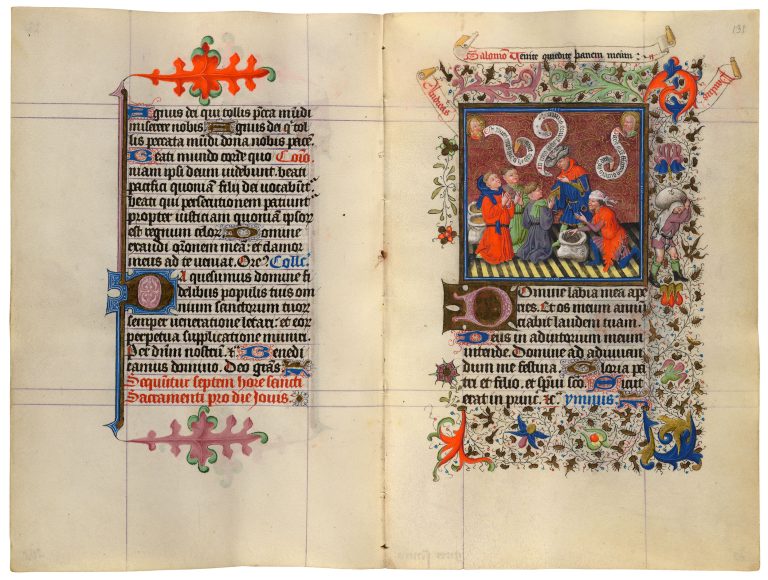 Agnus dei qui tollis pcca mūdi
miserere nobis Agnus dei q̄ tol
lis peccata mūdi dona nobis pacē.
Beati mundo corde quo Cōio
niam ipsi deum videbunt. beati
pacifici quoniā filij dei vocabūt.
beati qui persecutionem patiunt
propter iusticiam quoniam ipsor
est regnum celor Domine
exaudi orōnem meā: et clamor
meus ad te veniat. Collc̄.
Da quesumus domine fi
delibus populis tuis om
nium sanctorum tuor
semper veneratione letari: et eor
perpetua supplicatione muniri.
Per dnm nostrū. Benedi
camus domino. Deo grās.
Sequūtur septem hore sancti
Sacramenti pro die Jovis.
131
Salomō Venite panem meum
Domine labia mea ape
ries. Et os meum annū
ciabit laudem tuam.
Deus in adiutorium meum
intende. Domine ad adiuvan
dum me festina. Gloria pa
tri et filio. et spūi sco. Sicut
erat in princ. ymnus.